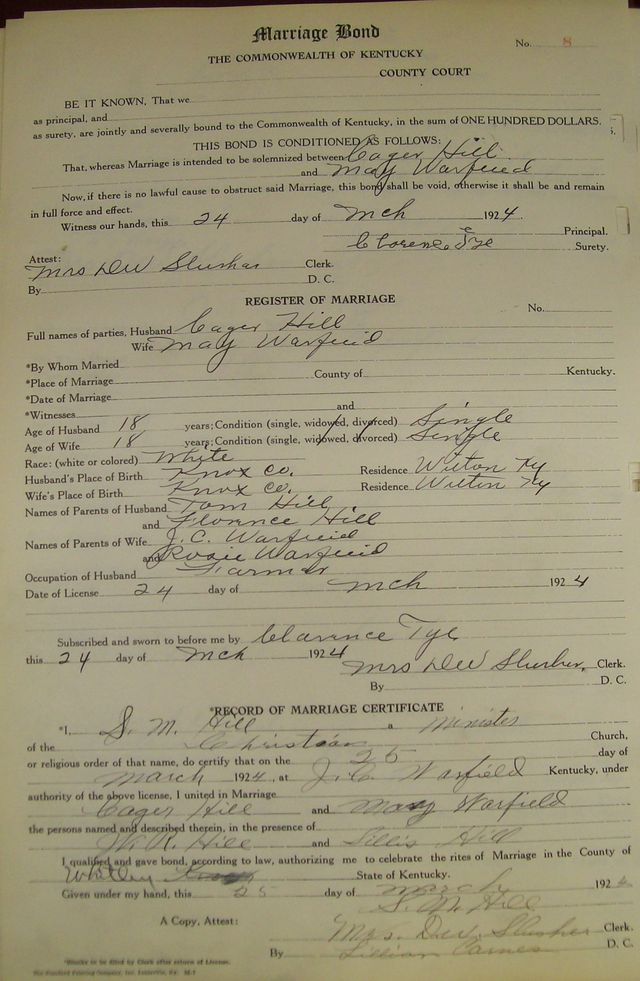 Marriage Bond
No. 8
THE COMMONWEALTH OF KENTUCKY
COUNTY COURT
BE IT KNOWN, That we
as principal, and
as surety, are jointly and severally bound to the Commonwealth of Kentucky, in the sum of ONE HUNDRED DOLLARS.
THIS BOND IS CONDITIONED AS FOLLOWS:
That, whereas Marriage is intended to be solemnized between Cager Hill
and May Warfield
Now, if there is no lawful cause to obstruct said Marriage, this bond shall be void, otherwise it shall be and remain
in full force and effect.
Witness our hands, this 24 day of Mch 1924.
Principal.
Clarence Tye Surety.
Attest:
Mrs DW Slusher Clerk.
By D. C.
REGISTER OF MARRIAGE
No.
Full names of parties, Husband Cager Hill
Wife May Warfield
*By Whom Married
*Place of Marriage County of Kentucky.
*Date of Marriage
*Witnesses and
Age of Husband 18 years; Condition (single, widowed, divorced) Single
Age of Wife 18 years; Condition (single, widowed, divorced) Single
Race: (white or colored) White
Husband's Place of Birth Knox Co. Residence Wilton Ky
Wife's Place of Birth Knox Co. Residence Wilton Ky
Names of Parents of Husband Tom Hill
and Florence Hill
Names of Parents of Wife J. C. Warfield
and Rosie Warfield
Occupation of Husband Farmer
Date of License 24 day of Mch 1924
Subscribed and sworn to before me by Clarence Tye
this 24 day of Mch 1924
Mrs DW Slusher, Clerk.
By D. C.
*RECORD OF MARRIAGE CERTIFICATE
*I, S. M. Hill a Minister
of the Christian Church,
or religious order of that name, do certify that on the 25 day of
March 1924, at J. C. Warfield Kentucky, under
authority of the above license, I united in Marriage
Cager Hill and May Warfield
the persons named and described therein, in the presence of
W. R. Hill and Lillis Hill
I qualified and gave bond, according to law, authorizing me to celebrate the rites of Marriage in the County of
Whitley State of Kentucky.
Given under my hand, this 25 day of March 1924
S. M. Hill
A Copy, Attest: Mrs. D.W. Slusher Clerk.
By Lillian Carnes D. C.
*Blanks to be filled by Clerk after return of License.